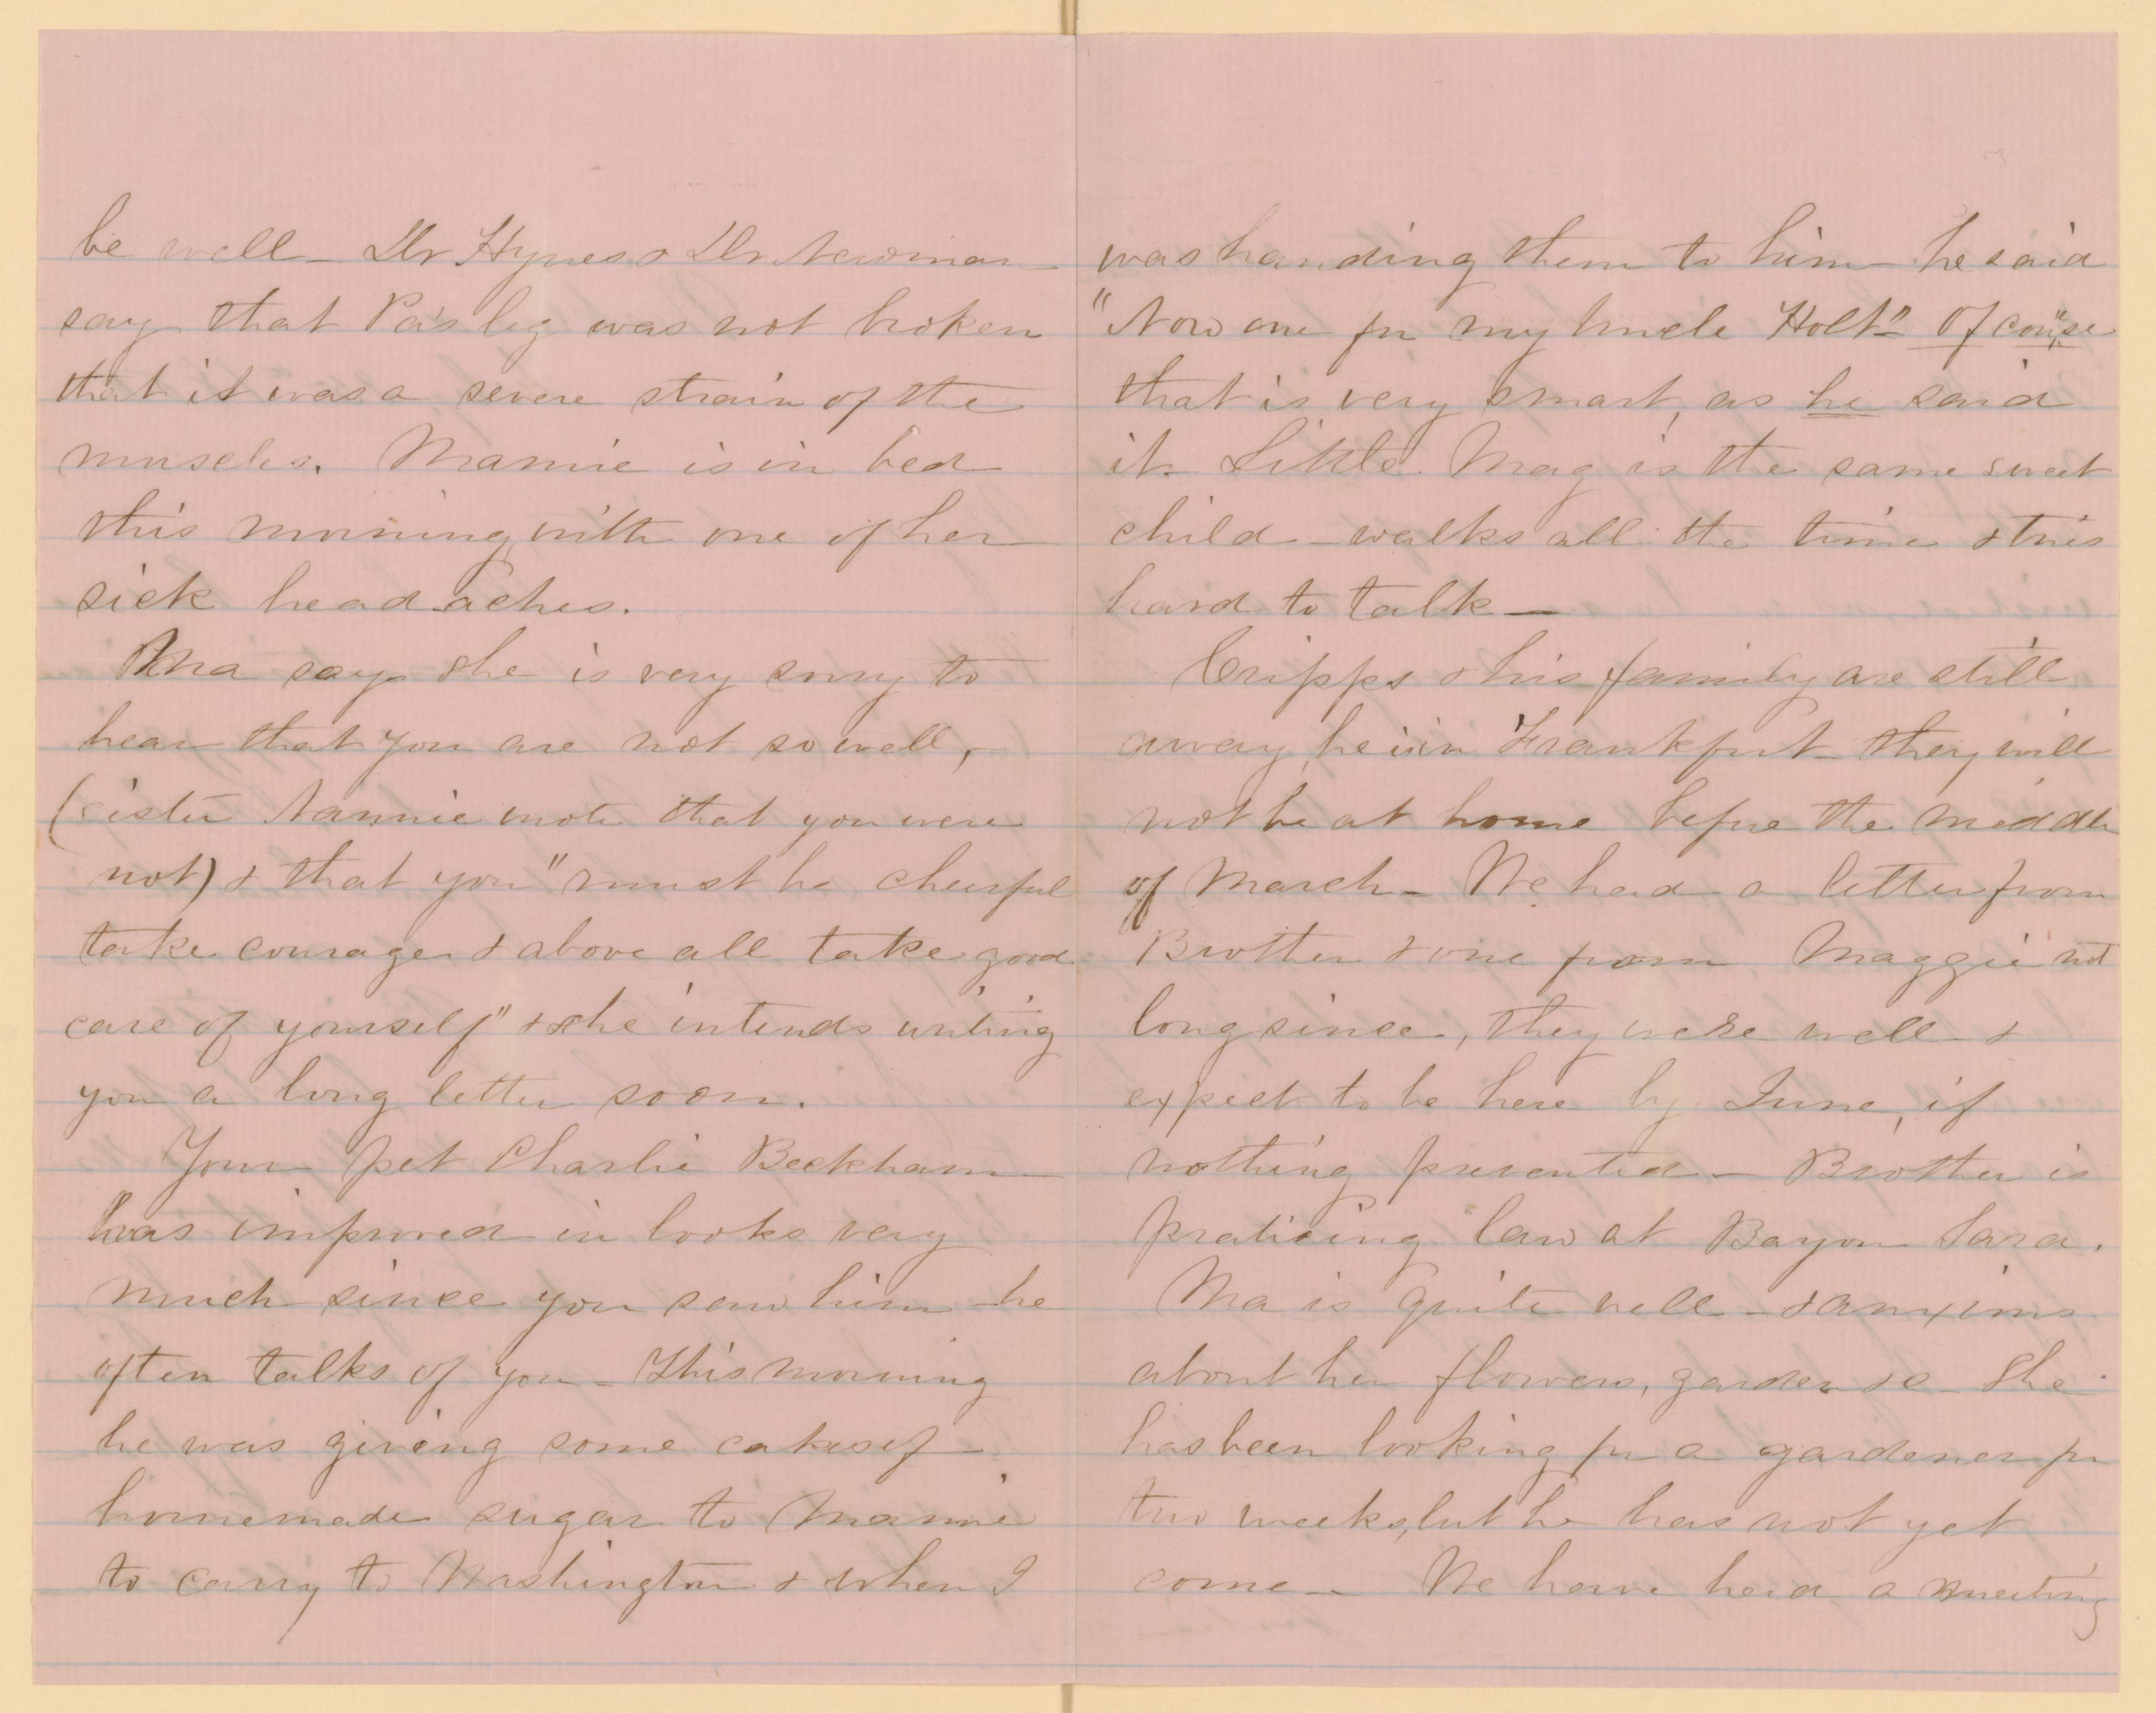 be well – Dr Hynes & Dr Newman
say that Pa's leg was not broken
that it was a severe strain of the
muscles. Mamie is in bed
this morning with one of her
sick head aches.
Ma says she is very sorry to
hear that you are not so well,
(sister Nannie wrote that you were
not) & that you "must be cheerful
take courage & above all take good
care of yourself" & she intends writing
you a long letter soon.
Your pet Charlie Beckham
has improved in looks very
much since you saw him – he
often talks of you – This morning
he was giving some cakes of
homemade sugar to Mamie
to carry to Washington & when I
was handing them to him – he said
"Now one for my Uncle Holt" – Of course
that is very smart, as he said
it. Little Mag is the same sweet
child – walks all the time & tries
hard to talk –
Cripps & his family are still
away, he is in Frankfort – they will
not be at home before the middle
of March – We had a letter from
Brother & one from Maggie not
long since, they were well &
expect to be here by June, if
nothing prevented – Brother is
praticing law at Bayou Sara.
Ma is quite well – & anxious
about her flowers, garden &c – She
has been looking for a gardener for
two weeks, but he has not yet
come – We have had a meeting